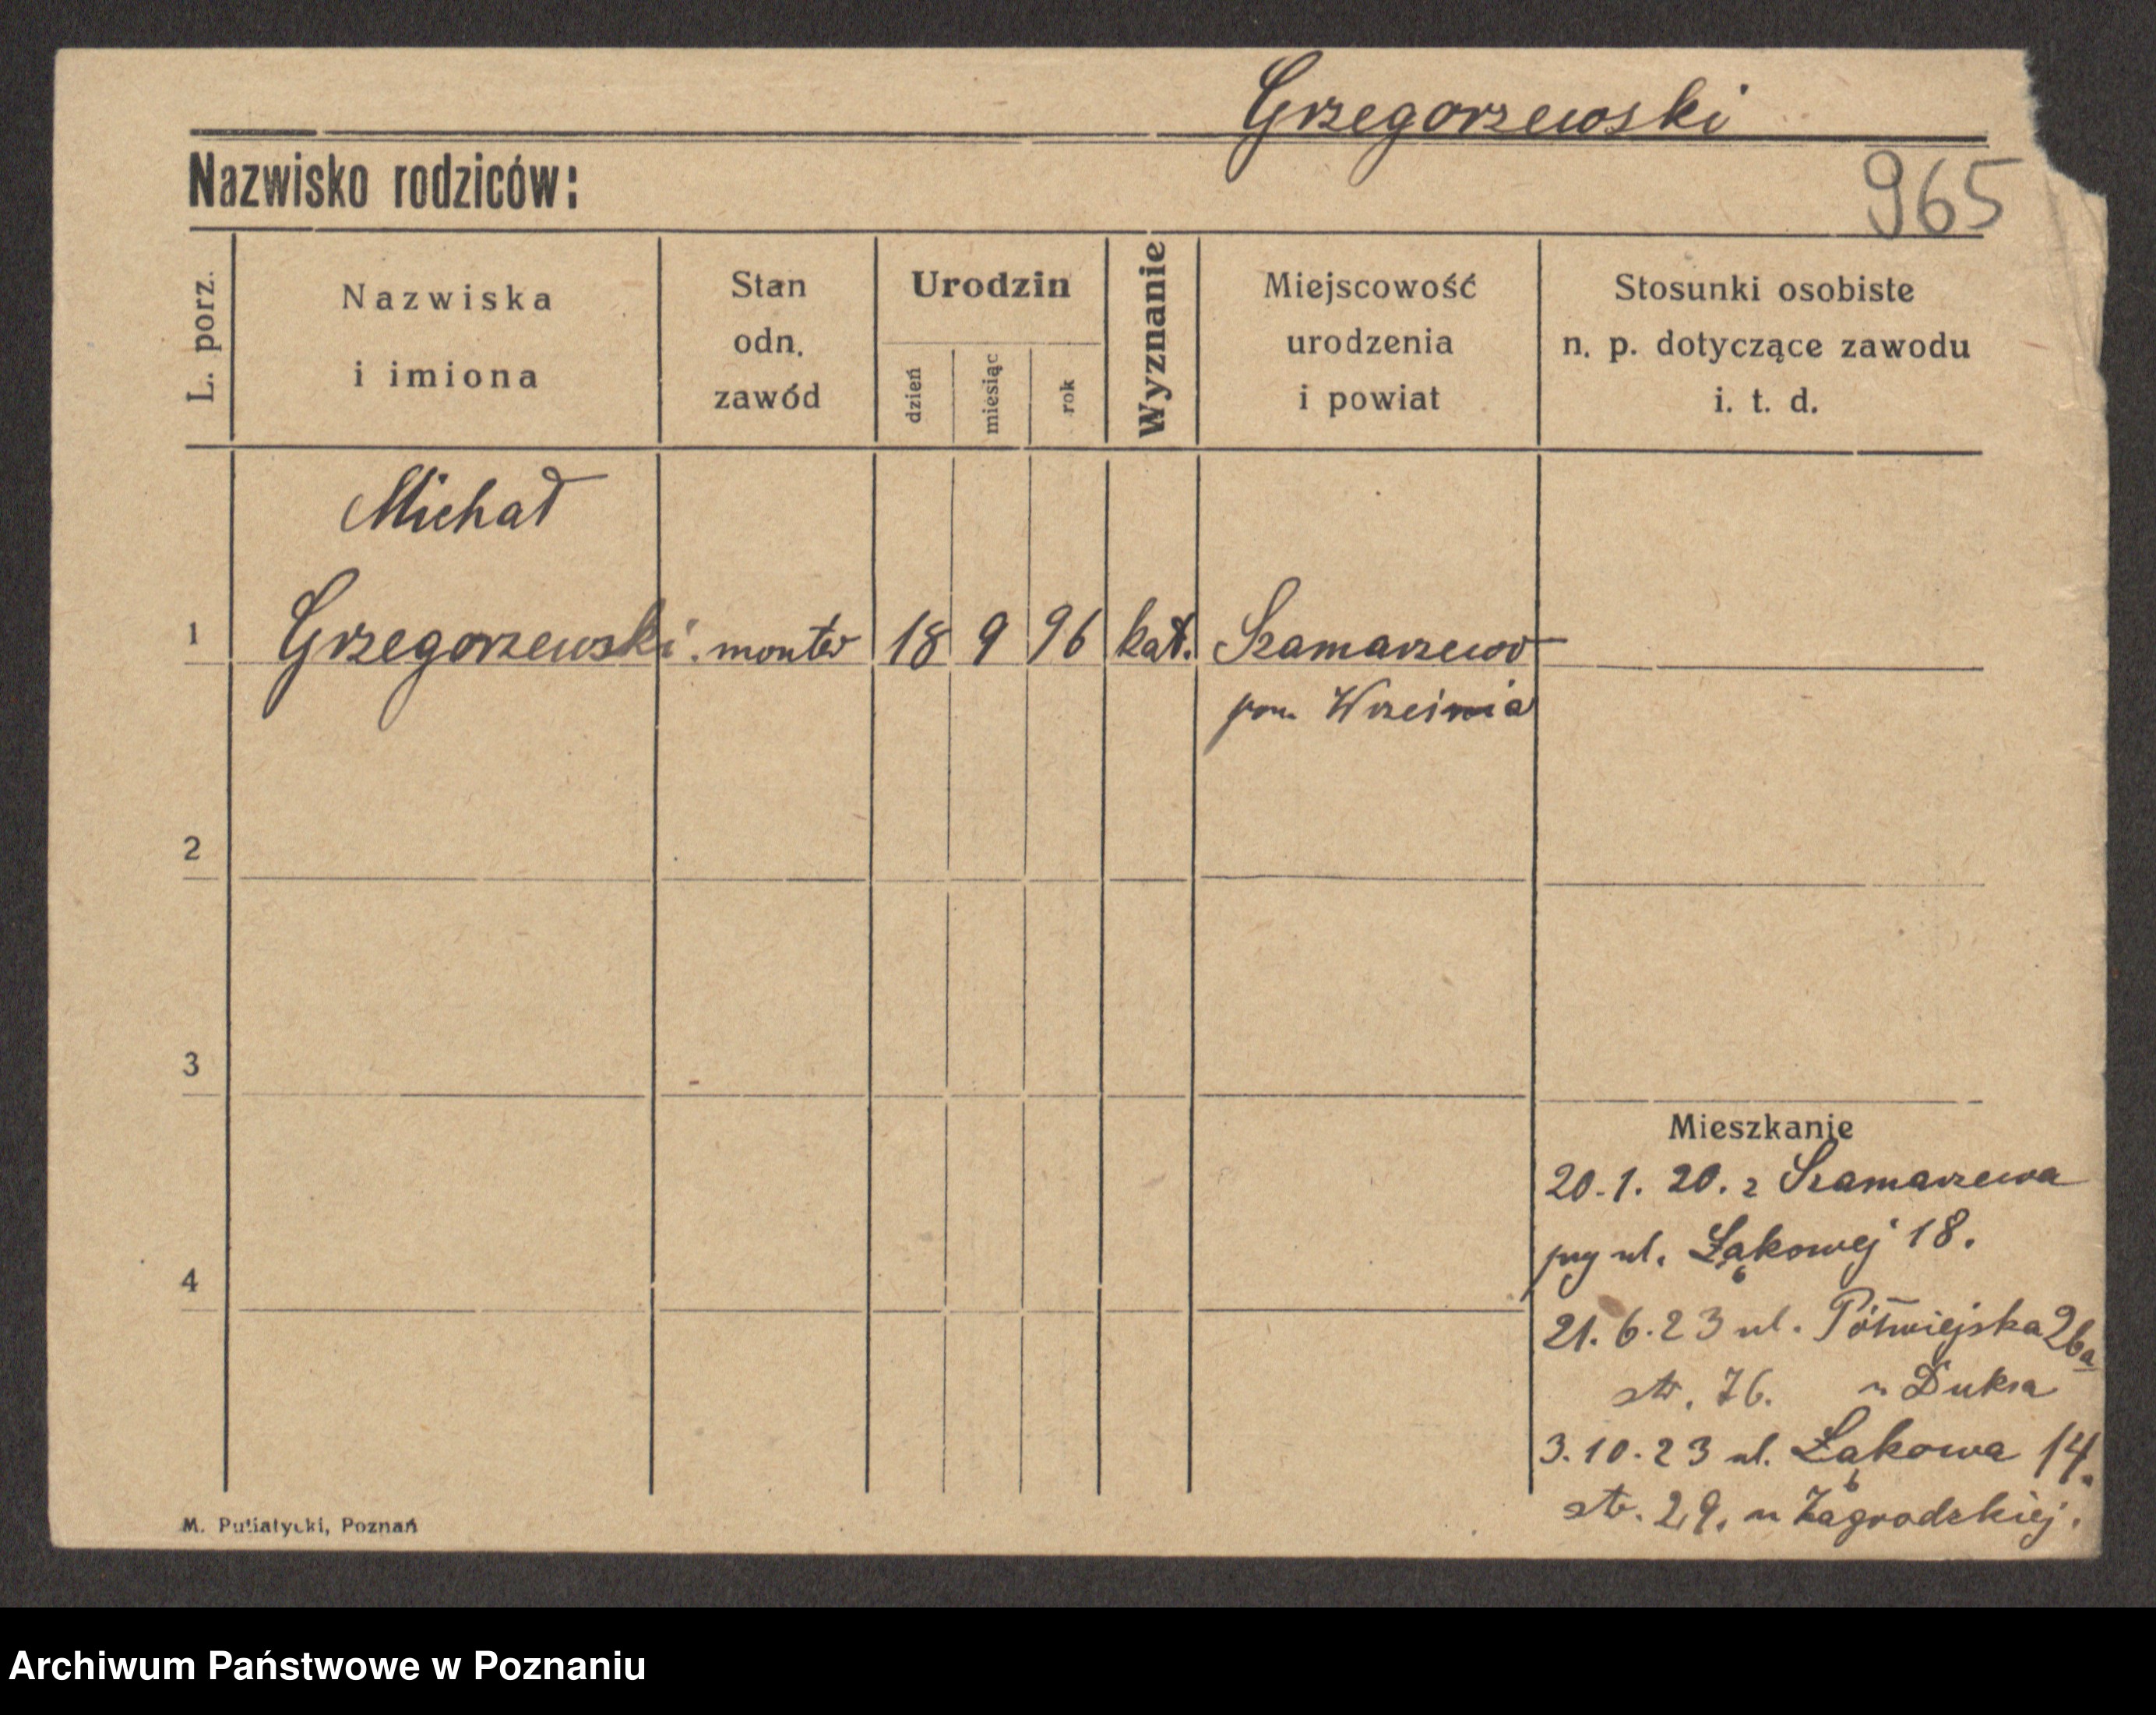 Grzegorzewski
Nazwisko rodziców:
965
L. porz.
Nazwiska
i imiona
Stan
odn.
zawód
Urodzin
dzień
miesiąc
rok
Wyznanie
Miejscowość
urodzenia
i powiat
Stosunki osobiste
n. p. dotyczące zawodu
i. t. d.
Michał
1 Grzegorzewski monter 18 9 96 kat. Szamarzewo
pow. Września
2
3
4
Mieszkanie
20.1.20. z Szamarzewa
przy ul. Łąkowej 18.
21.6.23 ul. Półwiejska 26a
str. 76. u Duksa
3.10.23 ul. Łąkowa 14.
str. 29. u Zagrodzkiej.
M. Putiatycki, Poznań
Archiwum Państwowe w Poznaniu